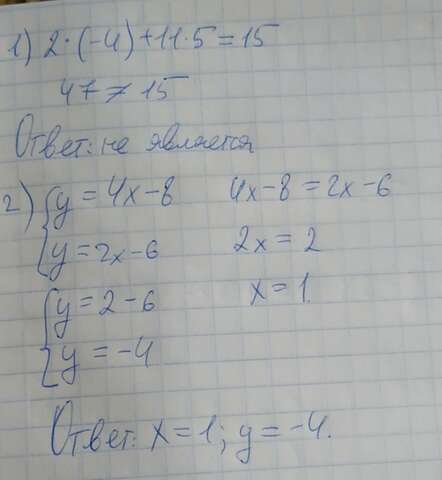 1) 2·(-4)+11·5=15
47≠15
Ответ: не является
2) {y=4x-8   4x-8=2x-6
{y=2x-6   2x=2
{y=2-6   x=1
{y=-4
Ответ: x=1; y=-4.